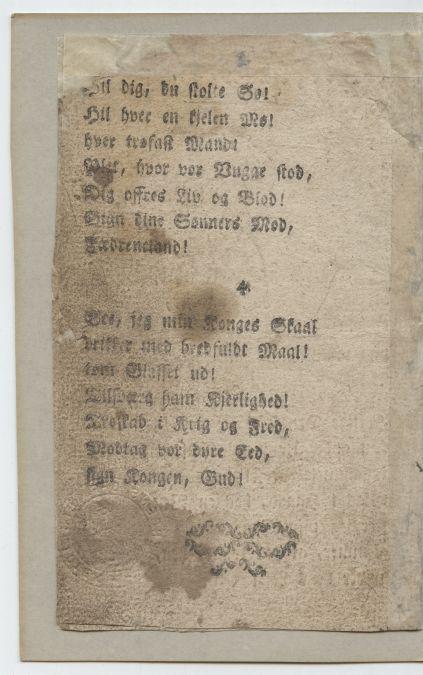 Hil dig, du stolte Sø!
Hil hver en kjelen Mø!
hver trofast Mand!
Plet, hvor vor Vugge stod,
Dig offres Liv og Blod!
Sign dine Sønners Mod,
Fædreneland!
4.
See, jeg min Konges Skaal
drikker med bredfuldt Maal!
tom Glasset ud!
Tilsværg ham Kjerlighed!
Troskab i Krig og Fred,
Modtag vor dyre Eed,
sign Kongen, Gud!